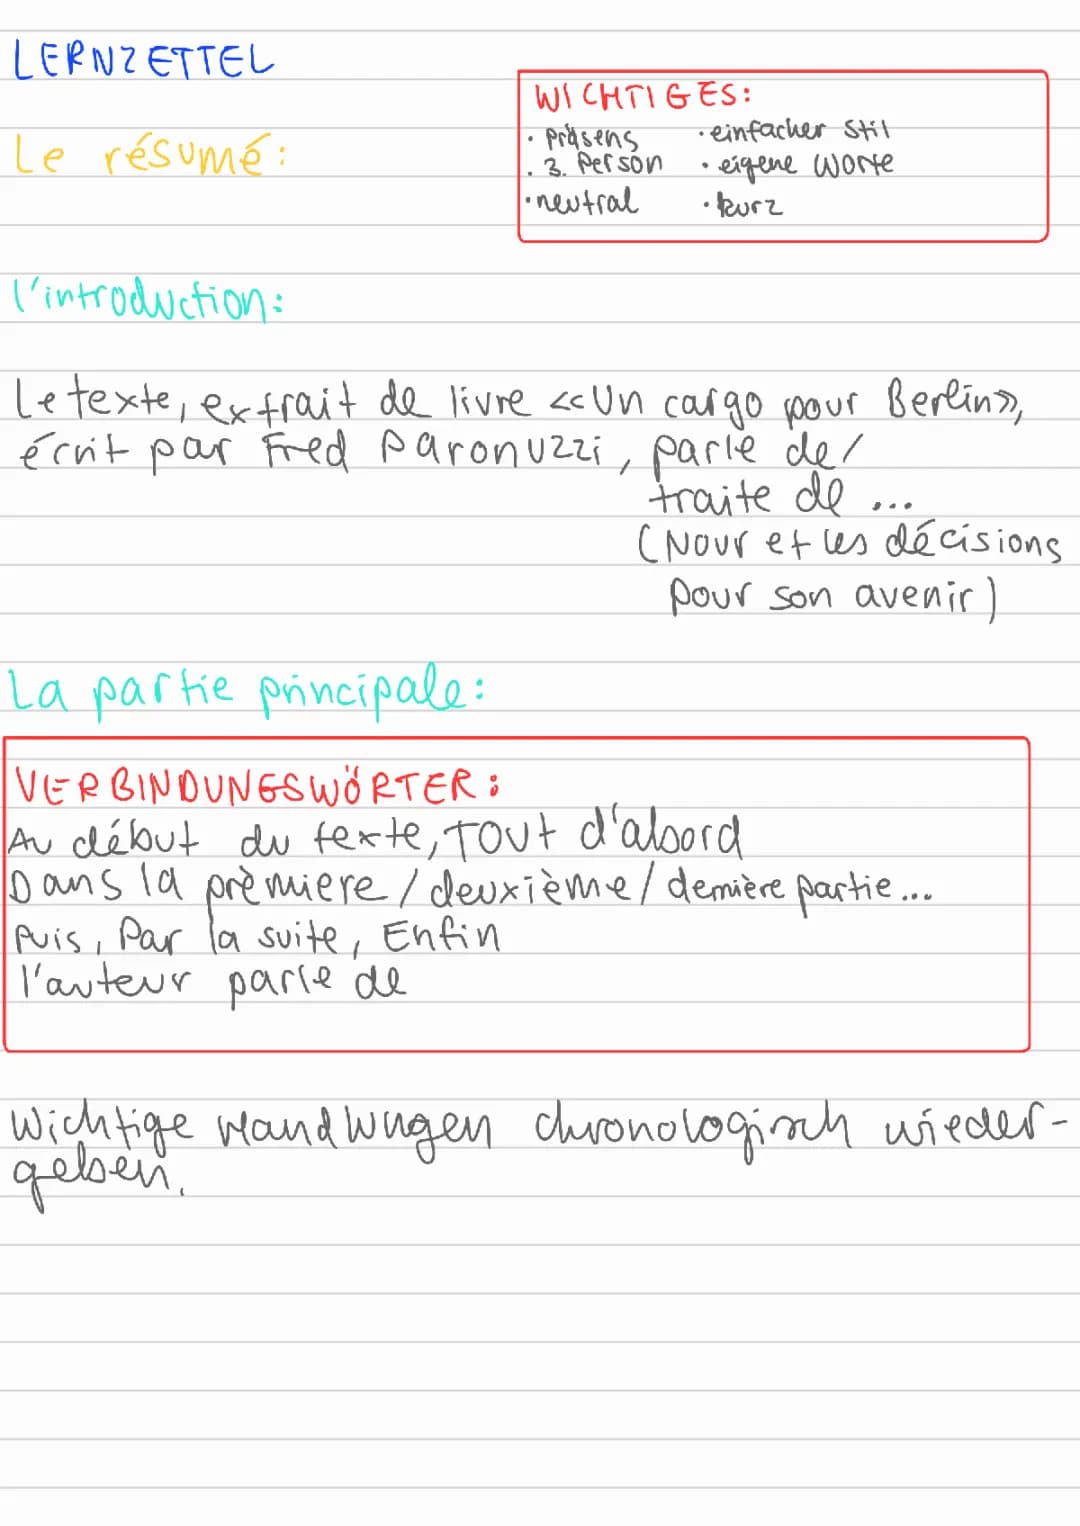 LERNZETTEL
WICHTIGES:
· Präsens · einfacher Stil
· 3. Person · eigene Worte
· neutral · kurz
Le résumé:
l'introduction:
Le texte, extrait de livre <<Un cargo pour Berlin>>,
écrit par Fred Paronuzzi, parle de/
traite de ...
(Nour et les décisions
pour son avenir)
La partie principale:
VERBINDUNGSWÖRTER:
Au début du texte, Tout d'abord
Dans la prèmiere / deuxième / dernière partie ...
Puis, Par la suite, Enfin
l'auteur parle de
Wichtige Handlungen chronologisch wieder-
geben.